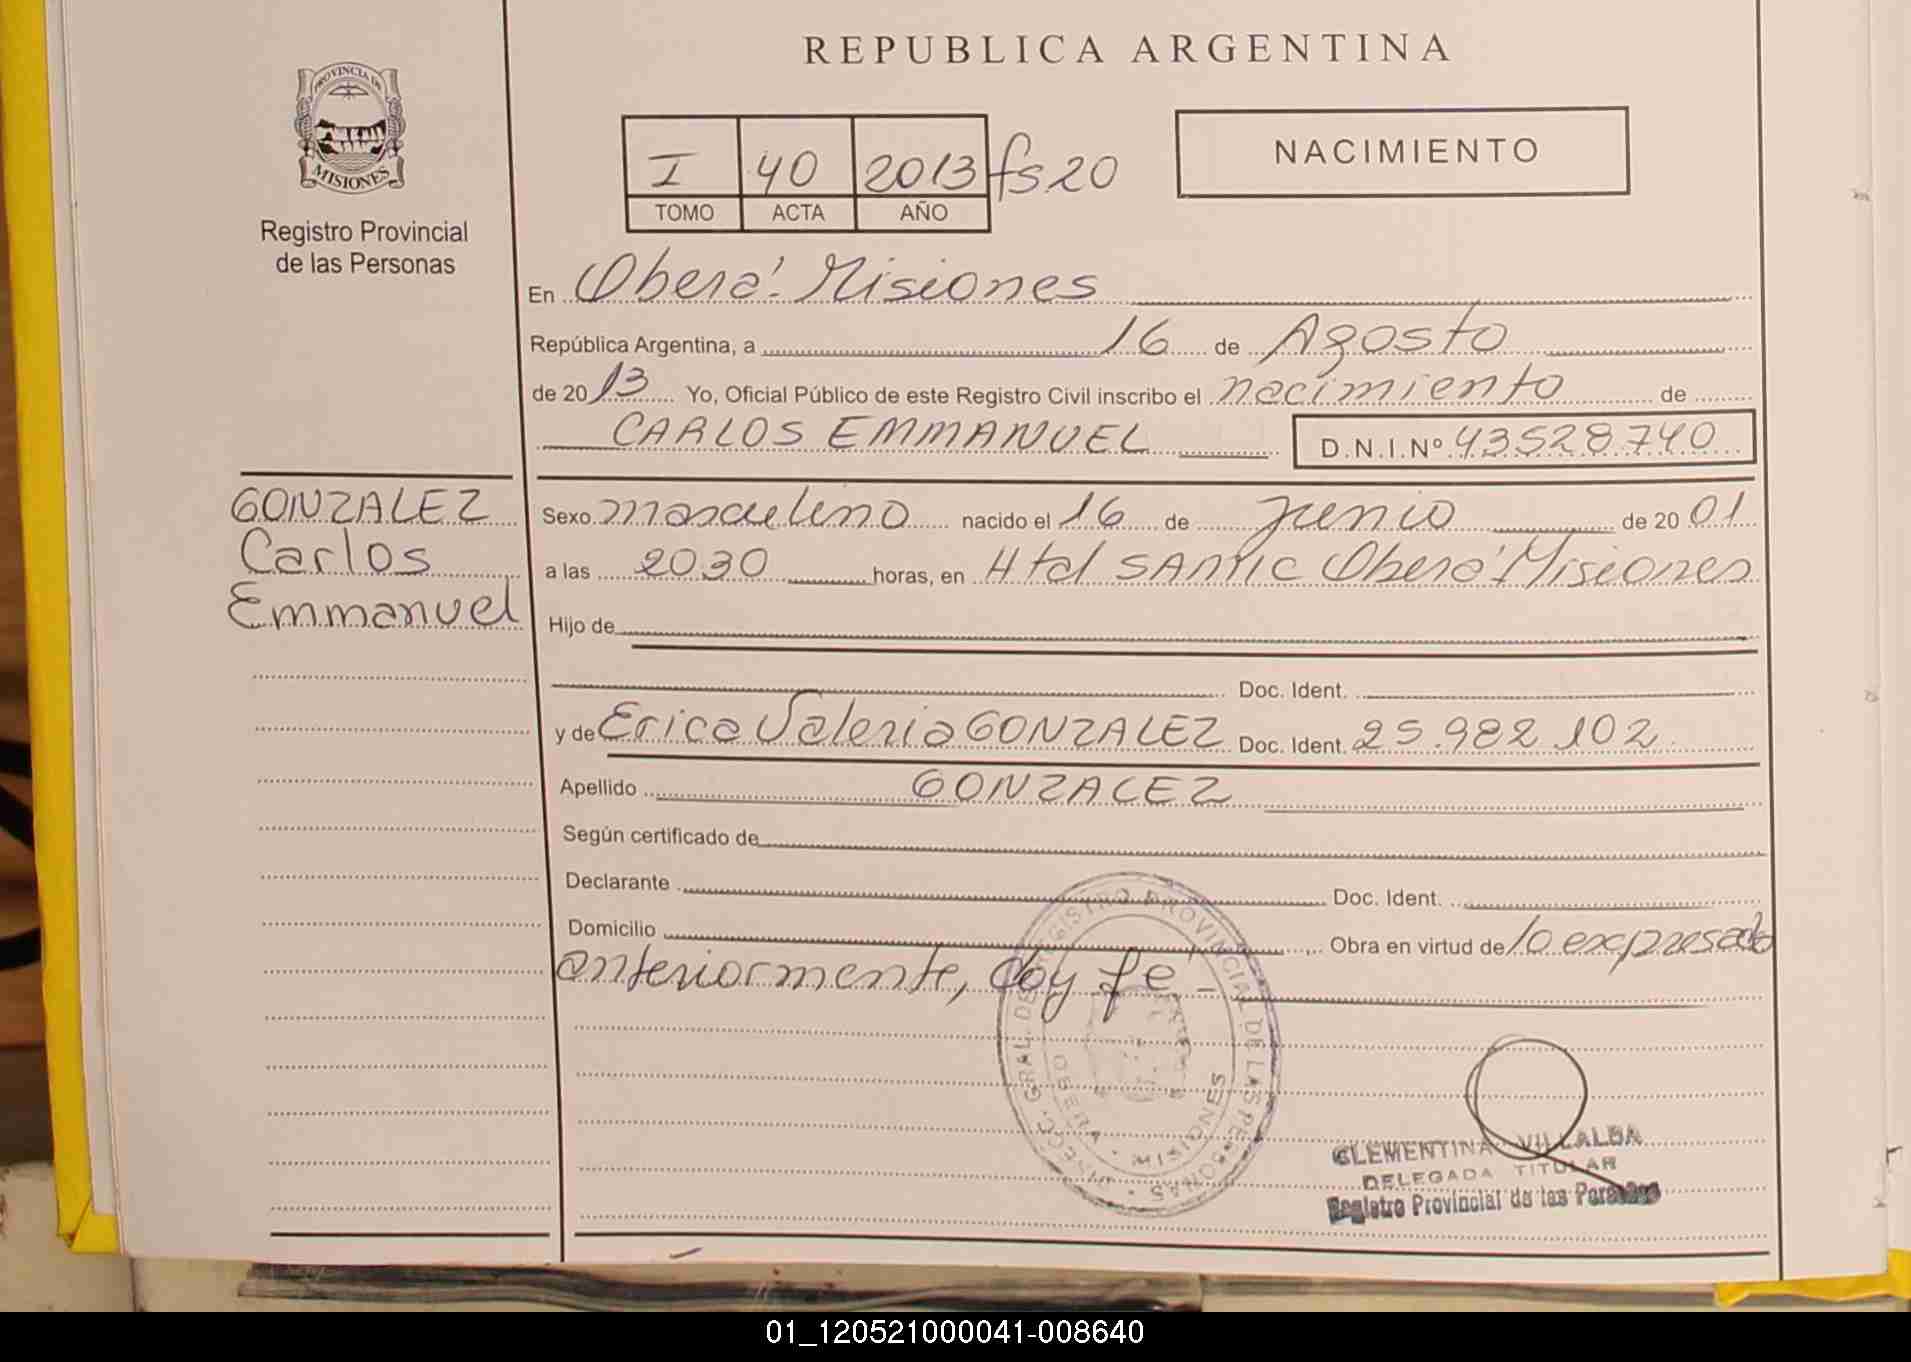 REPUBLICA ARGENTINA
PROVINCIA DE
MISIONES
Registro Provincial
de las Personas
I 40 2013 fs 20
TOMO ACTA AÑO
NACIMIENTO
En Oberá. Misiones
República Argentina, a 16 de Agosto
de 2013 Yo, Oficial Público de este Registro Civil inscribo el nacimiento de
CARLOS EMMANUEL D.N.I.Nº 43528740
GONZALEZ
Carlos
Emmanuel
Sexo masculino nacido el 16 de Junio de 2001
a las 2030 horas, en Htal SAMIC Oberá Misiones
Hijo de
Doc. Ident.
y de Erica Valeria GONZALEZ Doc. Ident. 25.982.102
Apellido GONZALEZ
Según certificado de
Declarante Doc. Ident.
Domicilio Obra en virtud de lo expresado
anteriormente, doy fe -
DIRECC. GRAL. DEL REGISTRO PROVINCIAL DE LAS PERSONAS
OBERA - MISIONES
CLEMENTINA VILLALBA
DELEGADA TITULAR
Registro Provincial de las Personas
01_120521000041-008640